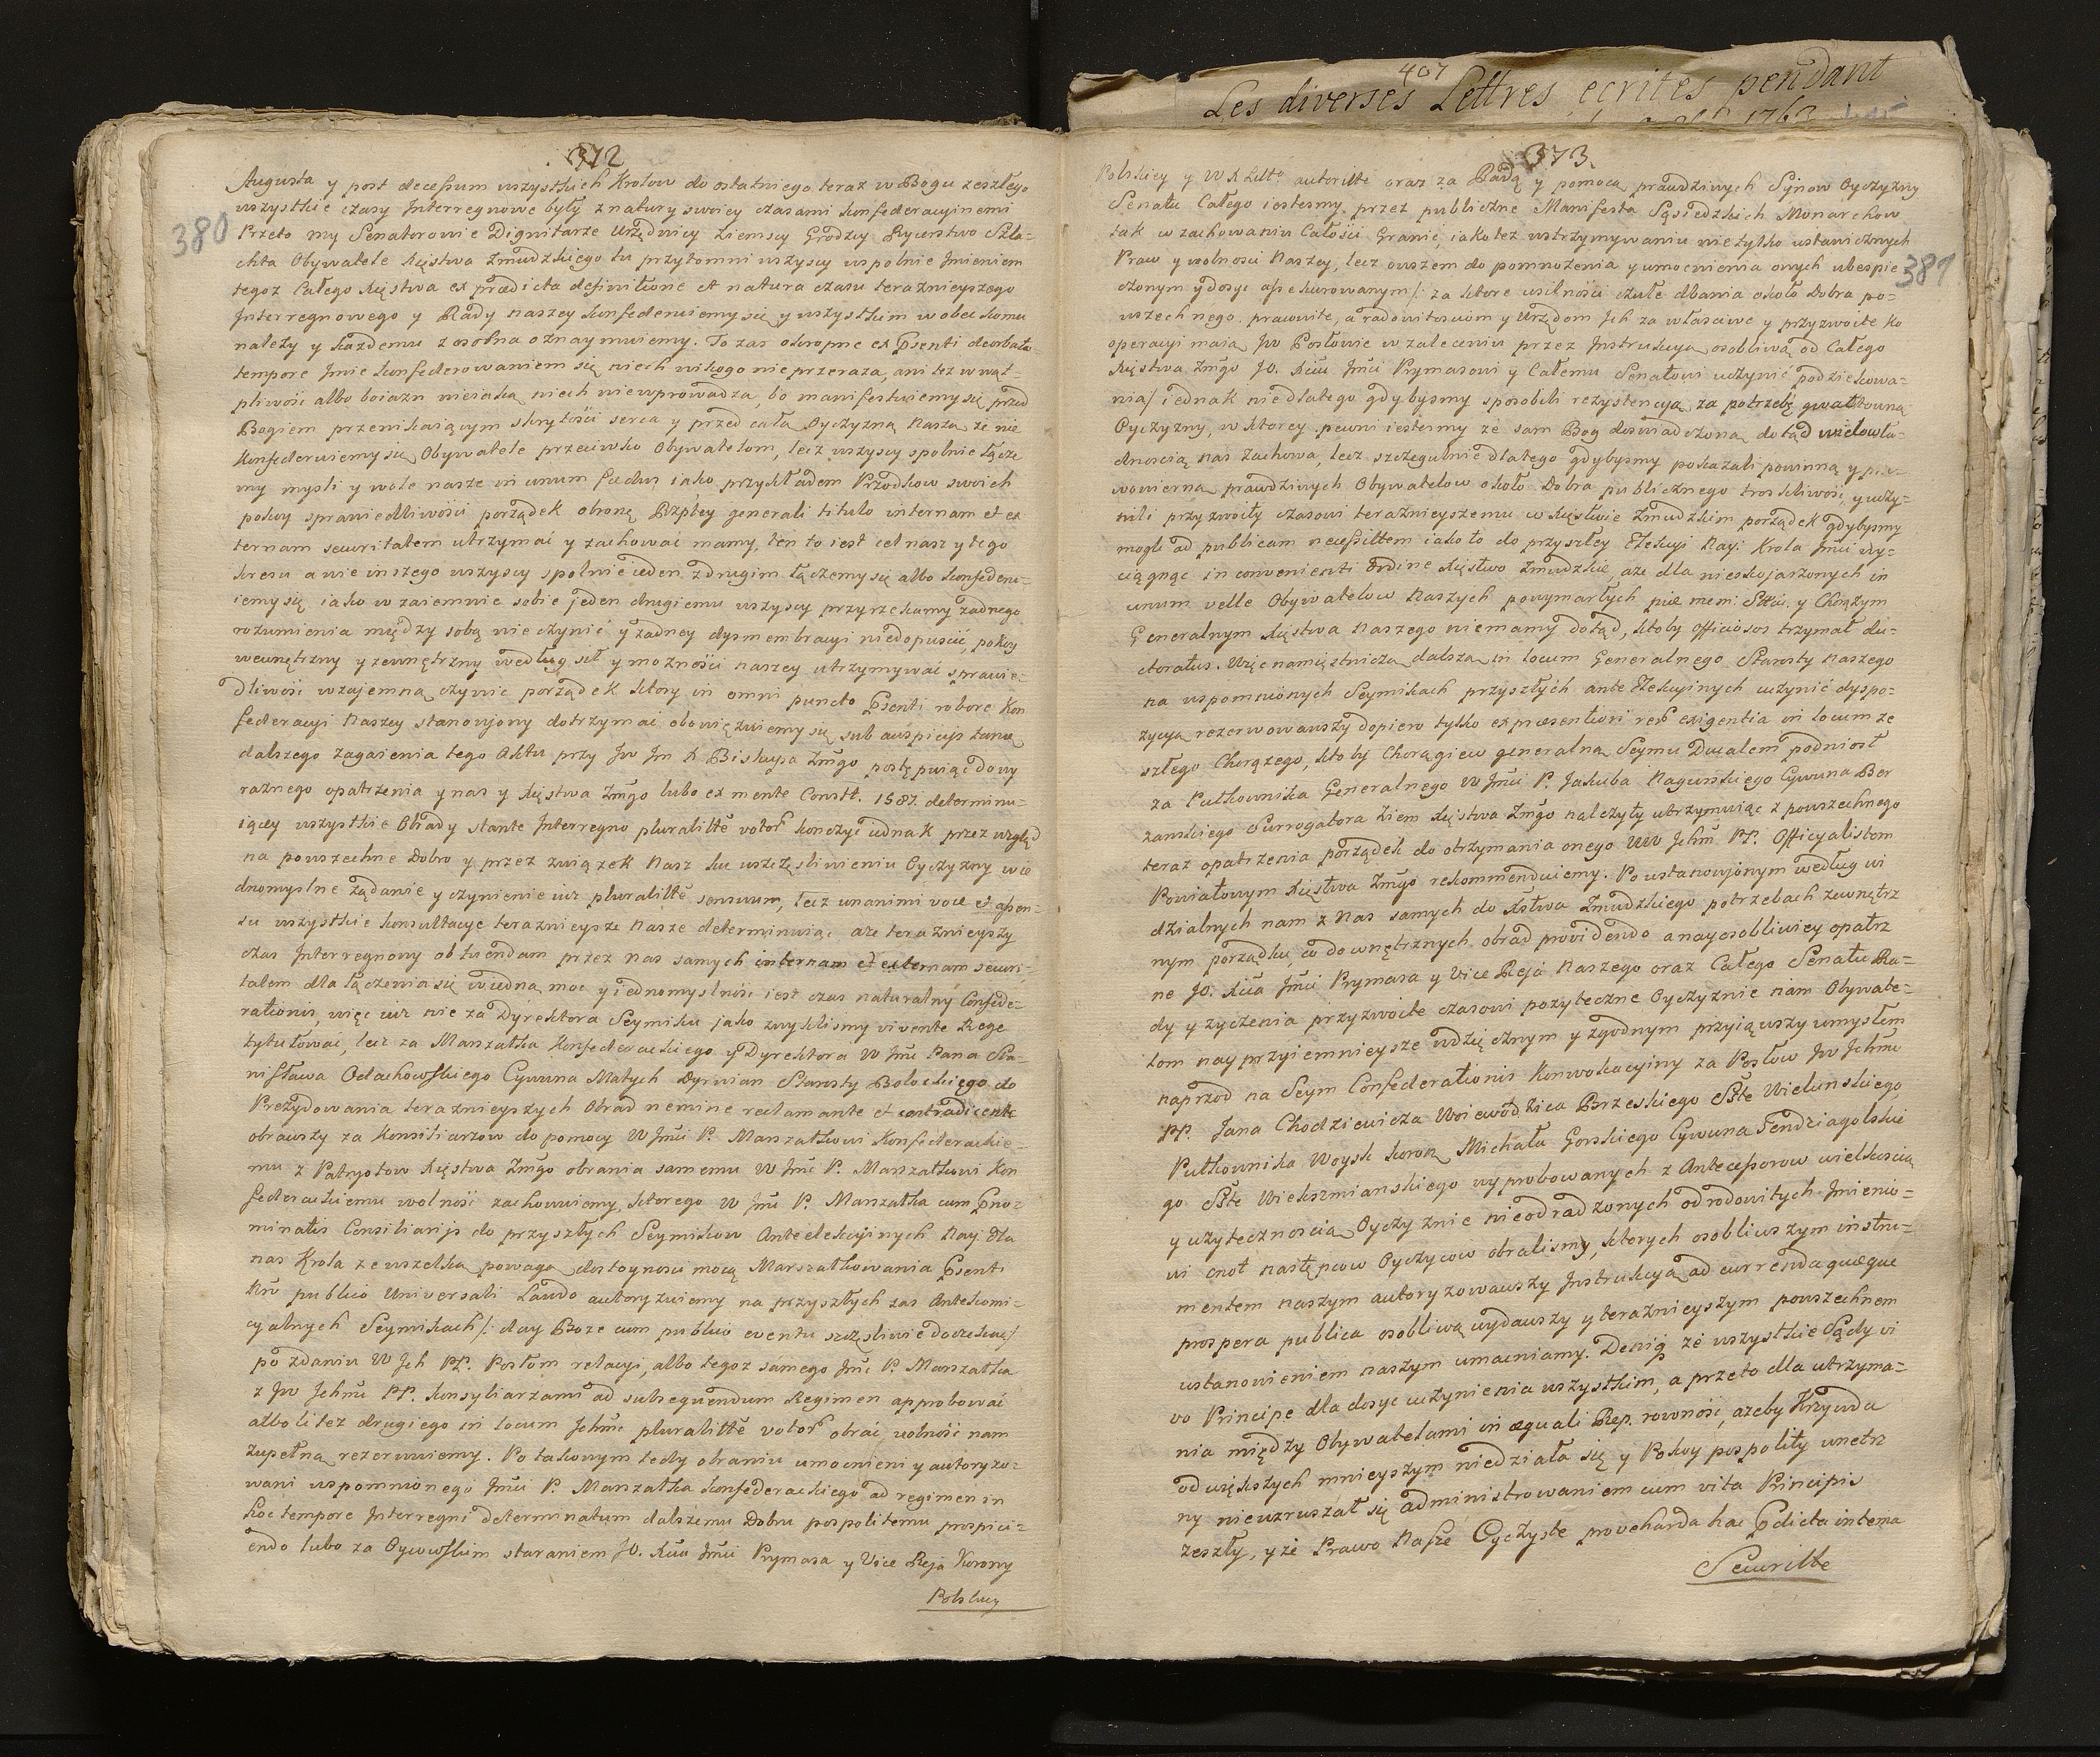 372
Augusta y post decessum wszystkich Krolow do ostatniego teraz w Bogu zeszłego
wszystkie czasy Interregnowe były z natury swoiey czasami konfederacyinemi
Przeto my Senatorowie Dignitarze Urzędnicy Ziemscy Grodzcy Rycerstwo Szla-
chta Obywatele Xięstwa Zmudzkiego tu przytomni wszyscy wspolnie Imieniem
tegoz Całego Xięstwa ex prædicta definitione et natura czasu teraznieyszego
Interregnowego y Rady naszey konfederuiemy się y wszystkim wobec komu
nalezy y kazdemu z osobna oznaymuiemy. To zas okropne ex Psenti
tempore Imie konfederowaniem się niech nikogo nie przeraza, ani tez w wąt-
pliwośc albo boiazn nieiaką niech niewprowadza, bo manifestuiemy się przed
Bogiem przenikaiącym skrytości serca y przed całą Oyczyzną Naszą ze nie
Konfederuiemy się Obywatele przeciwko Obywatelom, lecz wszyscy spolnie łącze
my mysli y wole nasze in unum fœdus iako przykładem Przodkow swoich
pokoy sprawiedliwości porządek obronę Rzpltey generali titulo internam et ex
ternam securitatem utrzymac y zachowac mamy, ten to iest cel nasz y tego
kresu a nie inszego wszyscy spolnie ieden z drugim łączemy się albo konfederu-
iemy się iako wzaiemnie sobie jeden drugiemu wszyscy przyrzekamy zadnego
rozumienia między sobą nie czynić y zadney dysmembracyi niedopuscic, pokoy
wewnętrzny y zewnętrzny według sił y mozności naszey utrzymywac sprawie-
dliwośc wzajemną czynic porządek ktory in omni puncto Psenti robore Kon
federacyi Naszey stanowjony dotrzymac obowięzuiemy się sub auspicijs
dalszego zagaienia tego Aktu przy Jw Jm X Biskupa Zmgo postępuiąc do wy
raznego opatrzenia y nas y Xięstwa Zmgo lubo ex mente Constt. 1587. determinu-
iącey wszystkie Obrady stante Interregno pluralitte votor konczyc iednak przez wzgląd
na powszechne Dobro y przez związek Nasz ku uszczęsliwieniu Oyczyzny wie
dnomyslne ządanie y czynienie iuz pluralitte sensuum, lecz unanimi voce et assen-
su wszystkie konsultacye teraznieysze Nasze determinuiąc aze teraznieyszy
czas Interregnowy ob tuendam przez nas samych internam et externam securi-
tatem dla łączenia się wiedną moc y iednomyslnośc iest czas naturalny Confede-
rationis, więc iuz nie za Dyrektora Seymiku jako zwyklismy vivente Rege
tytułowac, lecz za Marszałka Konfederackiego y Dyrektora W Jmc Pana Sta-
nisława Odachowskiego Cywuna Małych Dyrwian Starosty Bolockiego do
Prezydowania teraznieyszych Obrad nemine reclamante et contradicente
obrawszy za Konsiliarzow do pomocy W Jmci P. Marszałkowi Konfederackie-
mu z Patryotow Xięstwa Zmgo obrania samemu W Jmc P. Marszałkowi Kon
federackiemu wolnośc zachowuiemy, ktorego W Jmc P. Marszałka cum Pno-
minatis Consiliarijs do przyszłych Seymikow Anteelekcyinych Nay. dla
nas Krola ze wszelką powagą dostoynosci mocą Marszałkowania Psenti
Nro publico Universali Laudo autoryzuiemy na przyszłych zas Antekomi-
cyalnych Seymikach /: day Boze cum publico eventu szczęsliwie doczekac/
po zdaniu W Jch PP. Posłom relacyi, albo tegoz samego Jmc P. Marszałka
z Jw Jchmc PP. konsyliarzami ad subsequendum Regimen approbowac
albo li tez drugiego in locum Jchmc pluralitte votor obrac wolnośc nam
zupełną rezerwuiemy. Po takowym tedy obraniu umocnieni y autoryzo-
wani wspomnionego Jmci P. Marszałka konfederackiego ad regimen in
hoc tempore Interregni determinatum dalszemu Dobru pospolitemu prospici-
endo lubo za Oycowskim staraniem JO. Xcia Jmci Prymasa y Vice Reja Korony
Polskiey
380
407
Les diverses Lettres ecrites pendant
1763
373.
Polskiey y W X Litto autoritte oraz za Radą y pomocą prawdziwych Synow Oyczyzny
Senatu Całego iestesmy przez publiczne Manifesta Sąsiedzkich Monarchow
tak w zachowaniu Całości Granic, iakotez wstrzymywaniu nietylko ustawicznych
Praw y wolnosci Naszey, lecz owszem do pomnozenia y umocnienia onych ubespie
czonym y dosyc assekurowanym /: za ktore usilności czułe dbania około Dobra po-
wszechnego. prawuite, a radowitosciom y Urzędom Jch za własciwe y przyzwoite Ko
operacyi maią Jw Posłowie w zaleceniu przez Instrukcyą osobliwą od Całego
Xięstwa Zmgo JO. Xciu Jmci Prymasowi y Całemu Senatowi uczynic podziekowa-
nia/ iednak nie dlatego gdybysmy sposobili rezystencyą za potrzebę gwałtowną
Oyczyzny, w ktorey pewni iestesmy ze sam Bog doswiadczoną dotąd wielowła-
dnoscią nas zachowa, lecz szczegulnie dlatego gdybysmy pokazali powinną y pra-
wowierną prawdziwych Obywatelow około Dobra publicznego troskliwośc, y uczy-
nili przyzwoity czasowi teraznieyszemu w Xięstwie Zmudzkim porządek gdybysmy
mogli ad publicam necessittem iako to do przyszłey Elekcyi Nay: Krola Jmci wy-
ciągnąc in convenienti Ordine Xięstwo Zmudzkie, aze dla nieskojarzonych in
unum velle Obywatelow Naszych powymarłych piæ mem: Sttcie. y Chorązym
Generalnym Xięstwa Naszego niemamy dotąd, ktoby officiosos trzymał du-
ctoratus. Więc namięstniczą dalszą in locum Generalnego Starosty Naszego
na wspomnionych Seymikach przyszłych ante Elekcyinych uczynić dyspo-
zycyą rezerwowawszy dopiero tylko ex præsentiori rei exigentia in locum ze
szłego Chorązego, ktoby Chorągiew generalną Seymu Ducalem podniosł
za Pułkownika Generalnego W Jmci P. Jakuba Nagurskiego Cywuna Ber
zanskiego Surrogatora Ziem Xięstwa Zmgo nalezyty utrzymuiąc z powszechnego
teraz opatrzenia porządek do otrzymania onego WW Jchm PP. Officyalistom
Powiatowym Xięstwa Zmgo rekommenduiemy. Po ustanowjonym według wi
dzialnych nam z nas samych do Xstwa Zmudzkiego potrzebach zewnętrz
nym porządku co do wnętrznych obrad providendo a nayosobliwiey opatrz
ne JO. Xcia Jmci Prymasa y Vice Reja Naszego oraz Całego Senatu Ra-
dy y zyczenia przyzwoite czasowi pozyteczne Oyczyznie nam Obywate-
lom nayprzyiemnieysze wdzięcznym y zgodnym przyiąwszy umysłem
naprzod na Seym Confederationis Konwokacyiny za Posłow Jw Jchmc
PP. Jana Chodziewicza Woiewodzica Brzeskiego Stte Wielunskiego
Pułkownika Woysk koron. Michała Gorskiego Cywuna Tendziagolskie
go Stte Wiekszmianskiego wyprobowanych z Antecessorow wielkoscią
y uzytecznoscią Oyczyznie nieodradzonych od rodowitych Imienio-
wi cnot następcow Oyczycow obralismy, ktorych osobliwszym instru-
mentem naszym autoryzowawszy Instrukcyą ad currenda quæque
prospera publica osobliwą wydawszy y teraznieyszym powszechnem
ustanowieniem naszym umacniamy. Deniq ze wszystkie Sądy vi
vo Principe dla dosyc uczynienia wszystkim, a przeto dla utrzyma-
nia między Obywatelami in æquali Rep. rownośc, azeby Krzywda
od większych mnieyszym niedziała się y Pokoy pospolity wnętrz
ny niewzruszał się administrowaniem cum vita Principis
zeszły, y ze Prawo Nasze Oyczyste proveharda hac Pdicta interna
Securitte
381